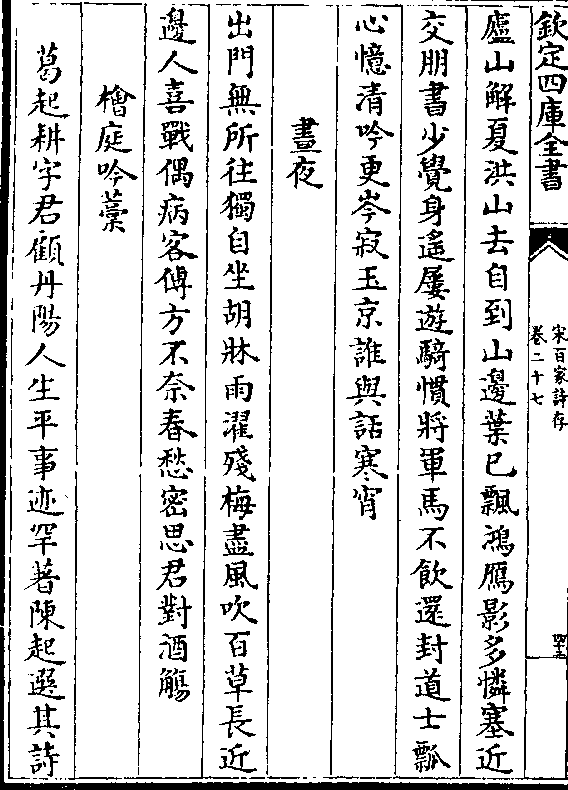 欽定四庫全書
宋百家詩存
卷二十七
廬山解夏洪山去自到山邊葉已飄鴻鴈影多憐塞近
交朋書少覺身遙屢遊騎慣將軍馬不飲還封道士瓢
心憶清吟更岑寂玉京誰與話寒宵
晝夜
出門無所往獨自坐胡牀雨濯殘梅盡風吹百草長近
邊人喜戰偶病客傳方不奈春愁密思君對酒觴
檜庭吟藁
葛起耕字君顧丹陽人生平事迹罕著陳起選其詩